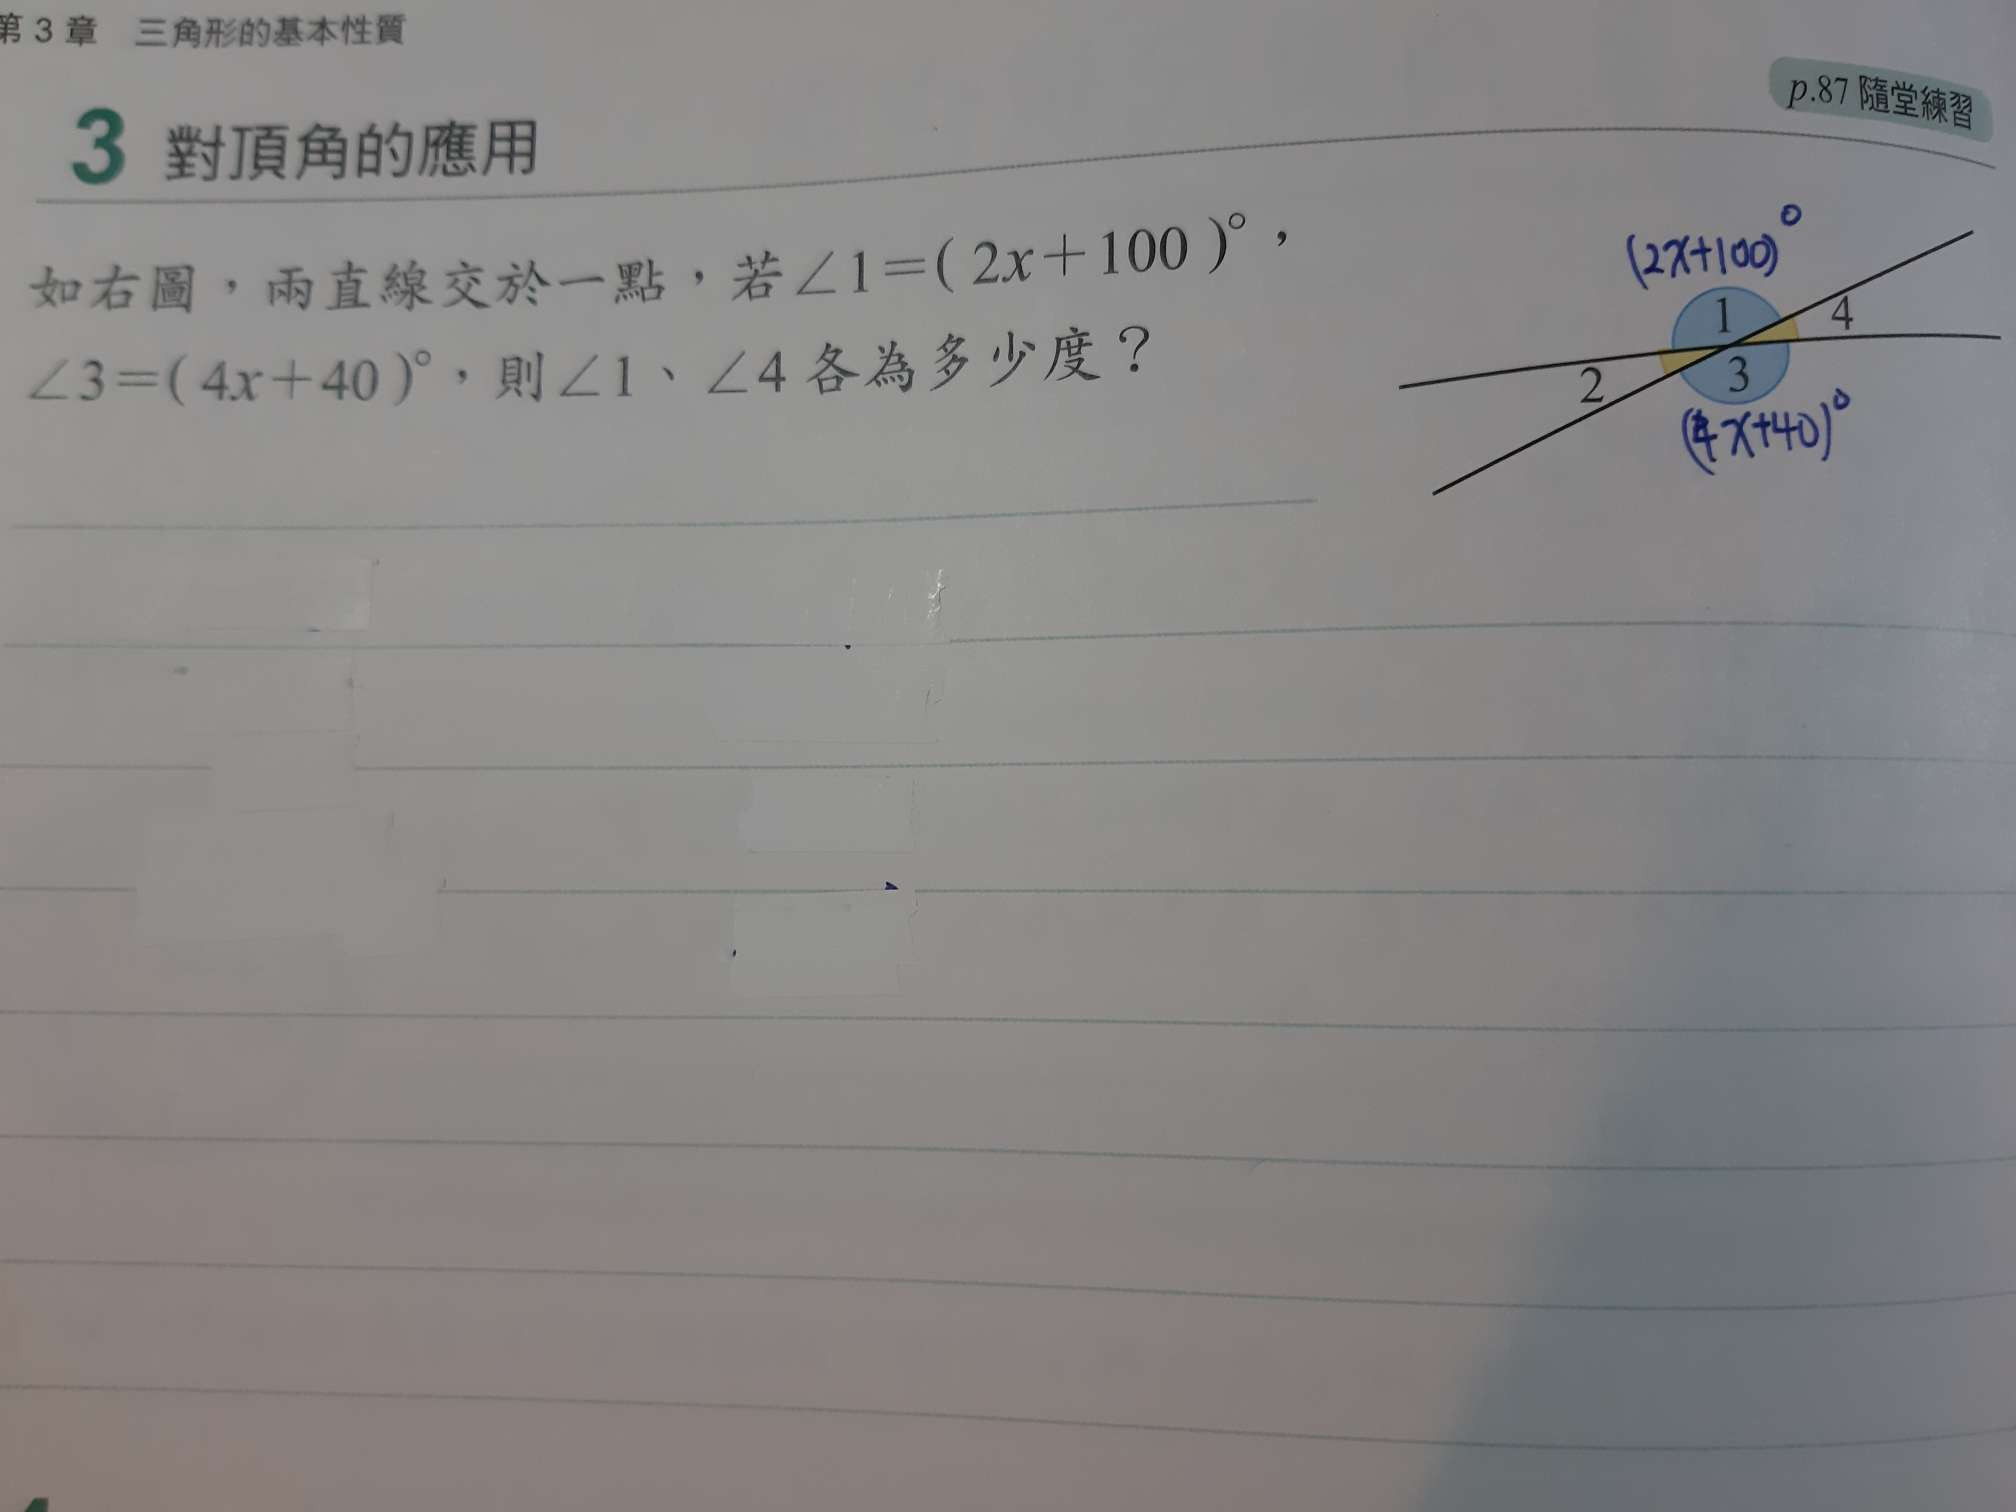 第 3 章 三角形的基本性質
p.87 隨堂練習
3 對頂角的應用
如右圖，兩直線交於一點，若∠1＝( 2x＋100 )°，
∠3＝( 4x＋40 )°，則∠1、∠4 各為多少度？
(2x+100)°
1
4
2
3
(4x+40)°